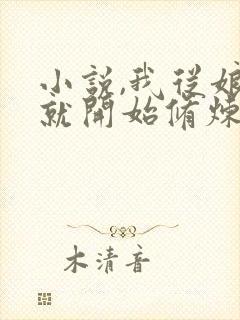 小説,我從娘
就開始脩煉
木清音